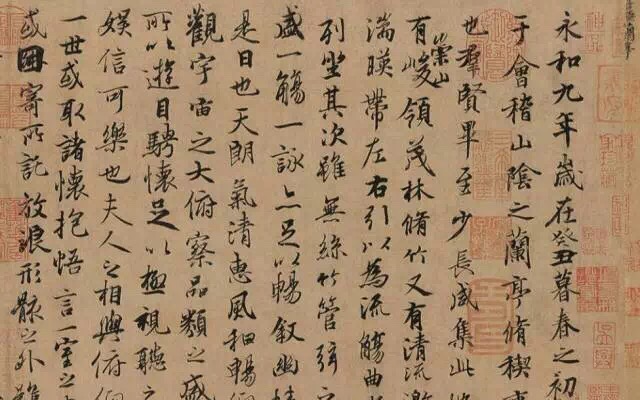 永和九年歲在癸丑暮春之初
于會稽山陰之蘭亭脩稧事
也羣賢畢至少長咸集此
有崇山峻領茂林脩竹又有清流激
湍暎帶左右引以為流觴曲
列坐其次雖無絲竹管弦之
盛一觴一詠亦足以暢敘幽情
是日也天朗氣清惠風和暢仰
觀宇宙之大俯察品類之盛
所以遊目騁懷足以極視聽之
娛信可樂也夫人之相與俯仰
一世或取諸懷抱悟言一室之
或因寄所託放浪形骸之外雖